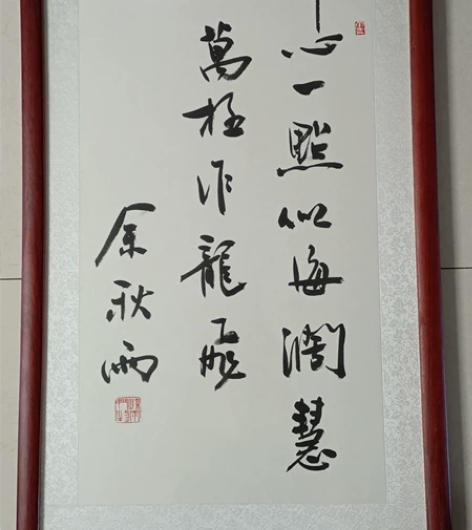 心一點似海濶慧
萬極作龍飛
余秋雨